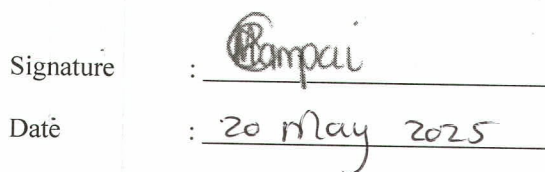 Signature : Rampai
Date : 20 May 2025